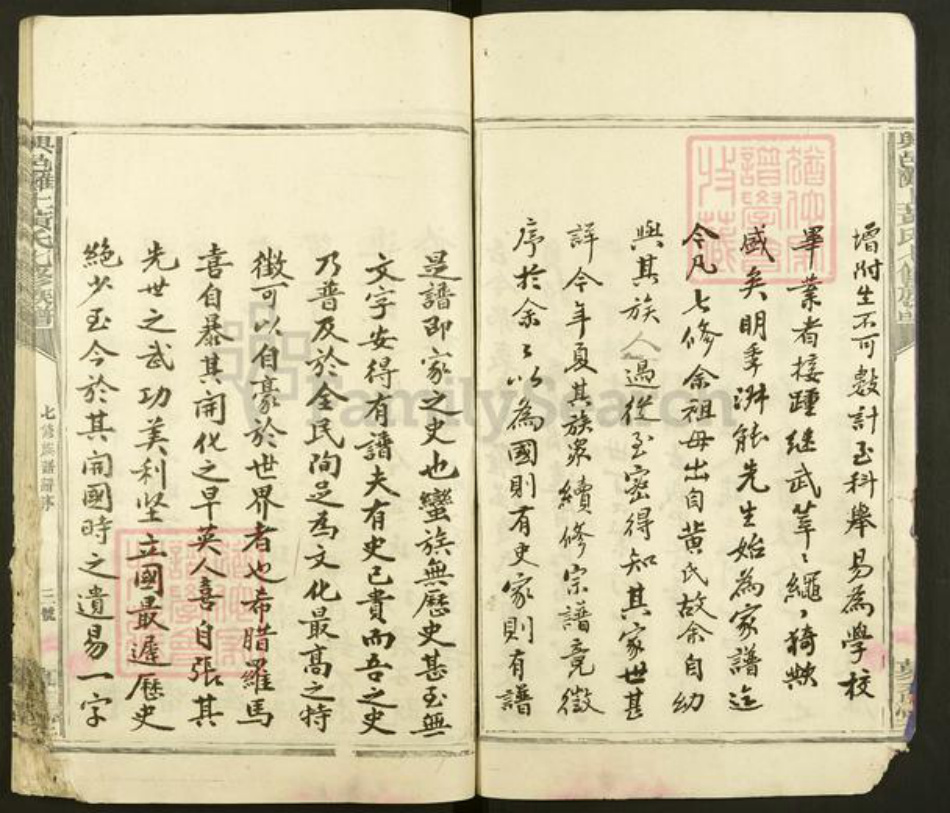 增附生不可數計至科舉易為學校
畢業者接踵继武莘〻繩〻猗歟
盛矣明季渊能先生始為家譜迄
今凡七修余祖母出自黄氏故余自幼
與其族人過從至密得知其家世甚
詳今年夏其族眾續修宗譜竟徵
序於余〻以為國則有史家則有譜
是譜即家之史也蠻族無歷史甚至無
文字安得有譜夫有史已貴而吾之史
乃普及於全民間足為文化最高之特
徵可以自豪於世界者也希腊羅馬
喜自暴其開化之早英人喜自張其
先世之武功美利坚立國最遲歷史
絶少至今於其開國時之遺易一字
七修族譜譜序
三號
FamilySearch